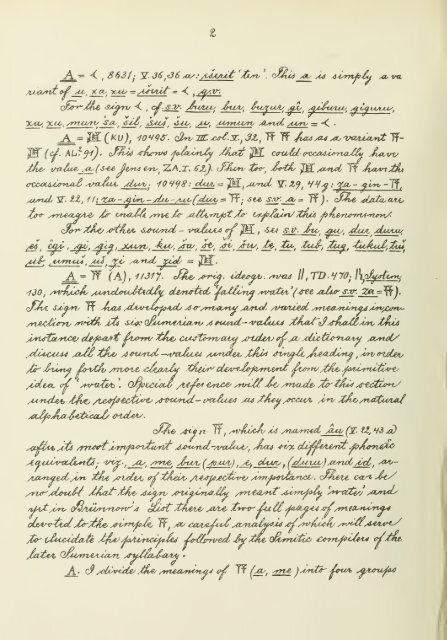 2
A = 𒌋, 8631; V. 36, 36 a: išerit 'ten'. This a is simply a va
riant of u, xa, xu = išerit = 𒌋, q.v.
For the sign 𒌋, cf. s.v. buru, bur, buzur, gî, giburu, giguru,
xa, xu, mun, ša, šil, šuš, šu, u, umun and un = 𒌋.
A = 𒆪 (KU), 10498. In III col. V, 32, 𒀀 𒀀 has as a variant 𒀀-
𒆪 (cf. AL³ 91). This shows plainly that 𒆪 could occasionally have
the value a (see Jensen, ZA. I. 62). Then too, both 𒆪 and 𒀀 have the
occasional value dur; 10498: dur = 𒆪, and V. 29, 44 g: za-gin-𒀀,
und V. 22, 11; za-gin-du-ru (dur = 𒀀; see s.v. a = 𒀀). The data are
too meagre to enable me to attempt to explain this phenomenon.
For the other sound-values of 𒆪, see s.v. bu, gu, dur, duru,
eš, igi, gi, gig, xun, ku, ša, še, ši, šu, te, tu, tub, tug, tukul, tuš
ub, umuš, uš, zi and zid = 𒆪.
A = 𒀀 (A), 11319. The orig. ideogr. was ||, TD. 470; System,
130, which undoubtedly denoted 'falling water' (see also s.v. za = 𒍝).
The sign 𒀀 has developed so many and varied meanings in con-
nection with its six Sumerian sound-values that I shall in this
instance depart from the customary order of a dictionary and
discuss all the sound-values under this single heading, in order
to bring forth more clearly their development from the primitive
idea of 'water'. Special reference will be made to this section
under the respective sound-values as they occur in the natural
alphabetical order.
The sign 𒀀, which is named âu (V. 22, 43 a)
after its most important sound-value, has six different phonetic
equivalents, viz., a, me, bur (pur), e, dur, (duru) and id, ar-
ranged in the order of their respective importance. There can be
no doubt that the sign originally meant simply 'water' and
yet in Brünnow's List there are two full pages of meanings
devoted to the simple 𒀀, a careful analysis of which will serve
to elucidate the principles followed by the Semitic compilers of the
later Sumerian syllabary.
A. I divide the meanings of 𒀀 (a, me) into four groups